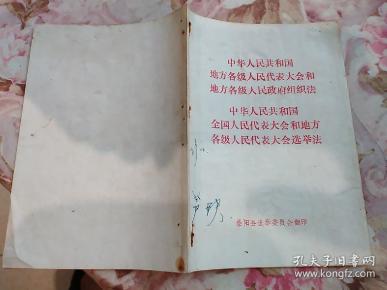 中华人民共和国
地方各级人民代表大会和
地方各级人民政府组织法
中华人民共和国
全国人民代表大会和地方
各级人民代表大会选举法
阳县选举委员会翻印
孔夫子旧书网